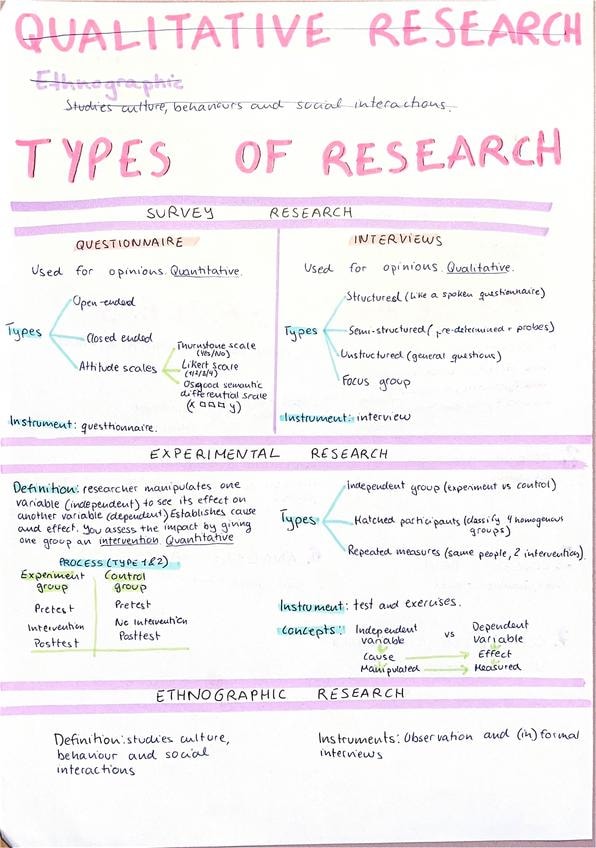 QUALITATIVE RESEARCH
Ethnographic
Studies culture, behaviours and social interactions.
TYPES OF RESEARCH
SURVEY RESEARCH
QUESTIONNAIRE
Used for opinions. Quantitative.
Types
Open-ended
Closed ended
Attitude scales
Thurnstone scale
(YES/NO)
Likert scale
(1/2/3/4)
Osgood semantic
differential scale
(X □□□ y)
Instrument: questionnaire.
INTERVIEWS
Used for opinions. Qualitative.
Types
Structured (like a spoken questionnaire)
Semi-structured (pre-determined + probes)
Unstructured (general questions)
Focus group
Instrument: interview
EXPERIMENTAL RESEARCH
Definition: researcher manipulates one
variable (independent) to see its effect on
another variable (dependent). Establishes cause
and effect. You assess the impact by giving
one group an intervention. Quantitative
PROCESS (TYPE 1&2)
Experiment group
Pretest
Intervention
Posttest
Control group
Pretest
No intervention
Posttest
Types
Independent group (experiment vs control)
Matched participants (classify 4 homogenous
groups)
Repeated measures (same people, 2 interventions).
Instrument: test and exercises.
Concepts:
Independent variable vs Dependent variable
Cause → Effect
Manipulated → Measured
ETHNOGRAPHIC RESEARCH
Definition: studies culture,
behaviour and social
interactions
Instruments: Observation and (in)formal
interviews